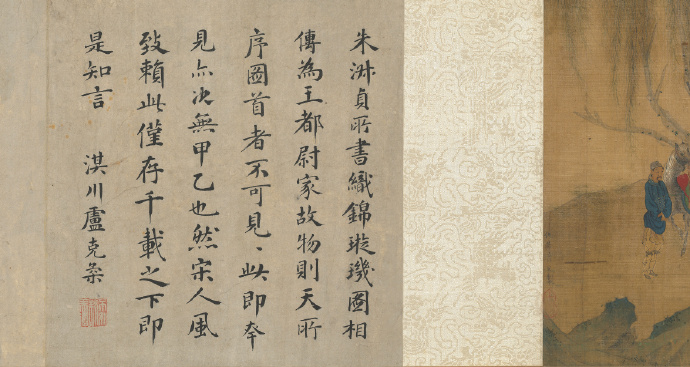 朱淑貞所書織錦璇璣圖相
傳為王都尉家故物則天所
序圖首者不可見、此即奉
見亦决無甲乙也然宋人風
致賴此僅存千載之下即
是知言 淇川盧克柔